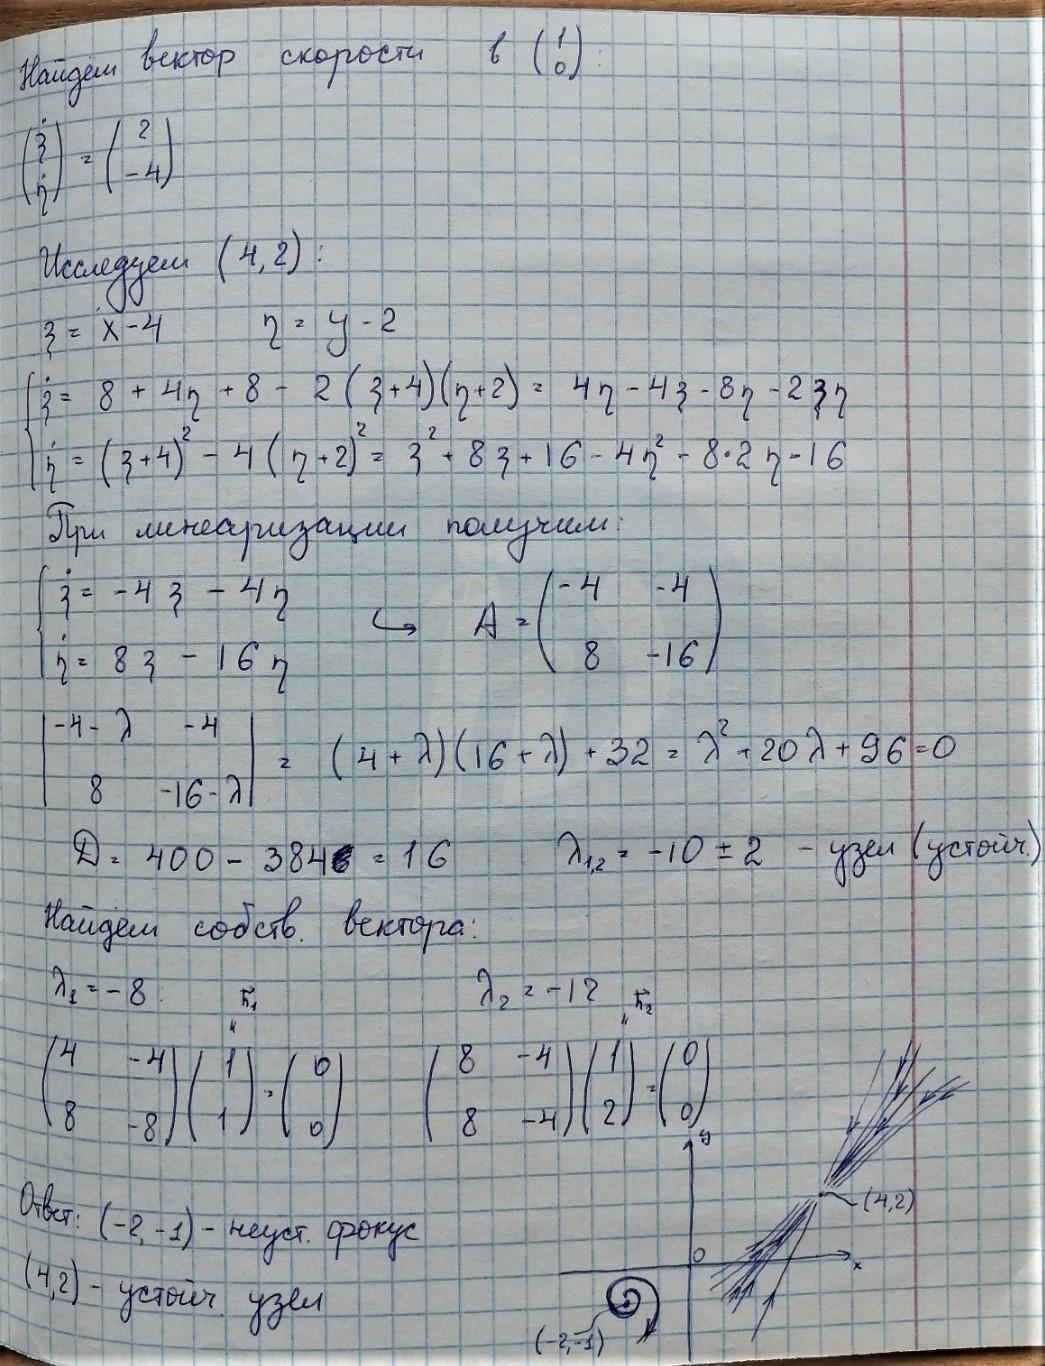 Найдём вектор скорости в (1 0):
(ξ̇ η̇) = (2 -4)
Исследуем (4,2):
ξ = x - 4 η = y - 2
{ ξ̇ = 8 + 4η + 8 - 2(ξ+4)(η+2) = 4η - 4ξ - 8η - 2ξη
η̇ = (ξ+4)² - 4(η+2)² = ξ² + 8ξ + 16 - 4η² - 8·2η - 16
При линеаризации получим:
{ ξ̇ = -4ξ - 4η
η̇ = 8ξ - 16η ↪ A = (-4 -4 8 -16)
|-4-λ -4 8 -16-λ| = (4+λ)(16+λ) + 32 = λ² + 20λ + 96 = 0
D = 400 - 384 = 16 λ₁,₂ = -10 ± 2 - узел (устойч.)
Найдём собств. вектора:
λ₁ = -8: h⃗₁ λ₂ = -12 h⃗₂
(4 -4 8 -8)(1 1) = (0 0) (8 -4 8 -4)(1 2) = (0 0)
y
Ответ: (-2,-1) - неуст. фокус
(4,2)
0
x
(4,2) - устойч. узел
(-2,-1)